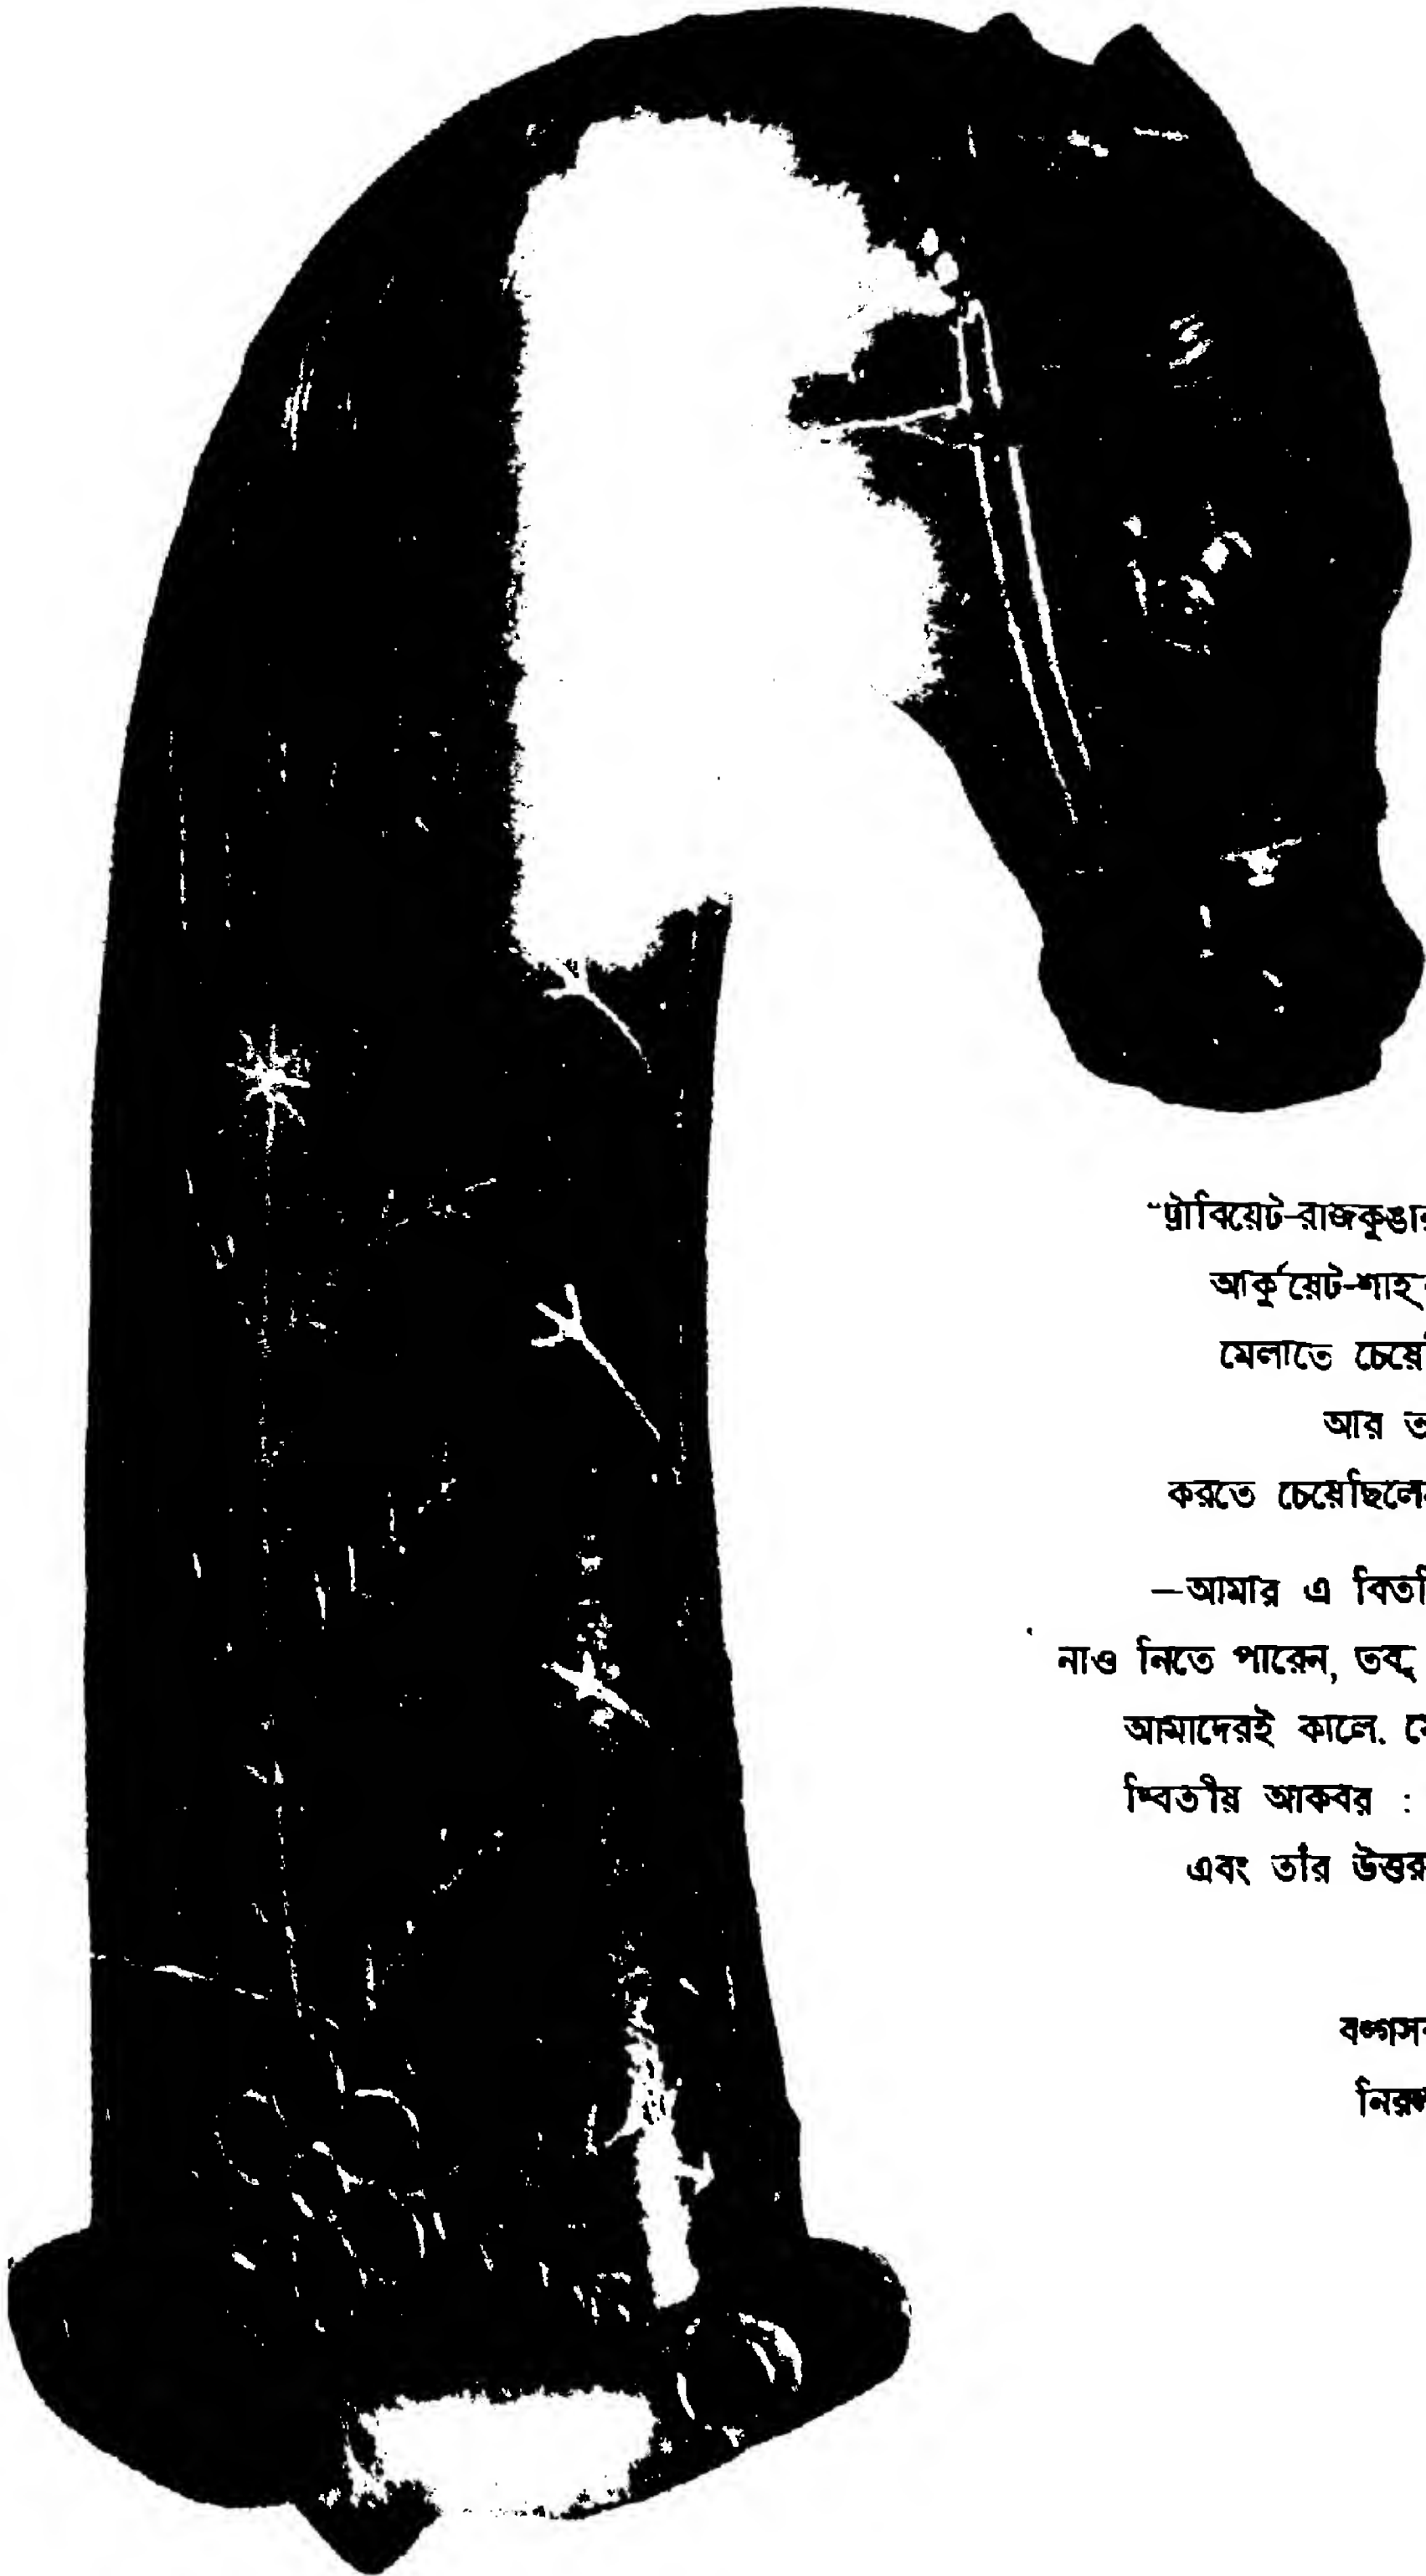 "ট্রাবিয়েট-রাজকুঙার
আর্কুয়েট-শাহ
মেলাতে চেয়ে
আর ত
করতে চেয়েছিলেন
—আমার এ বিতর্কি
নাও নিতে পারেন, তবু
আমাদেরই কালে. যে
দ্বিতীয় আকবর :
এবং তাঁর উত্তর
বঙ্গস
নির